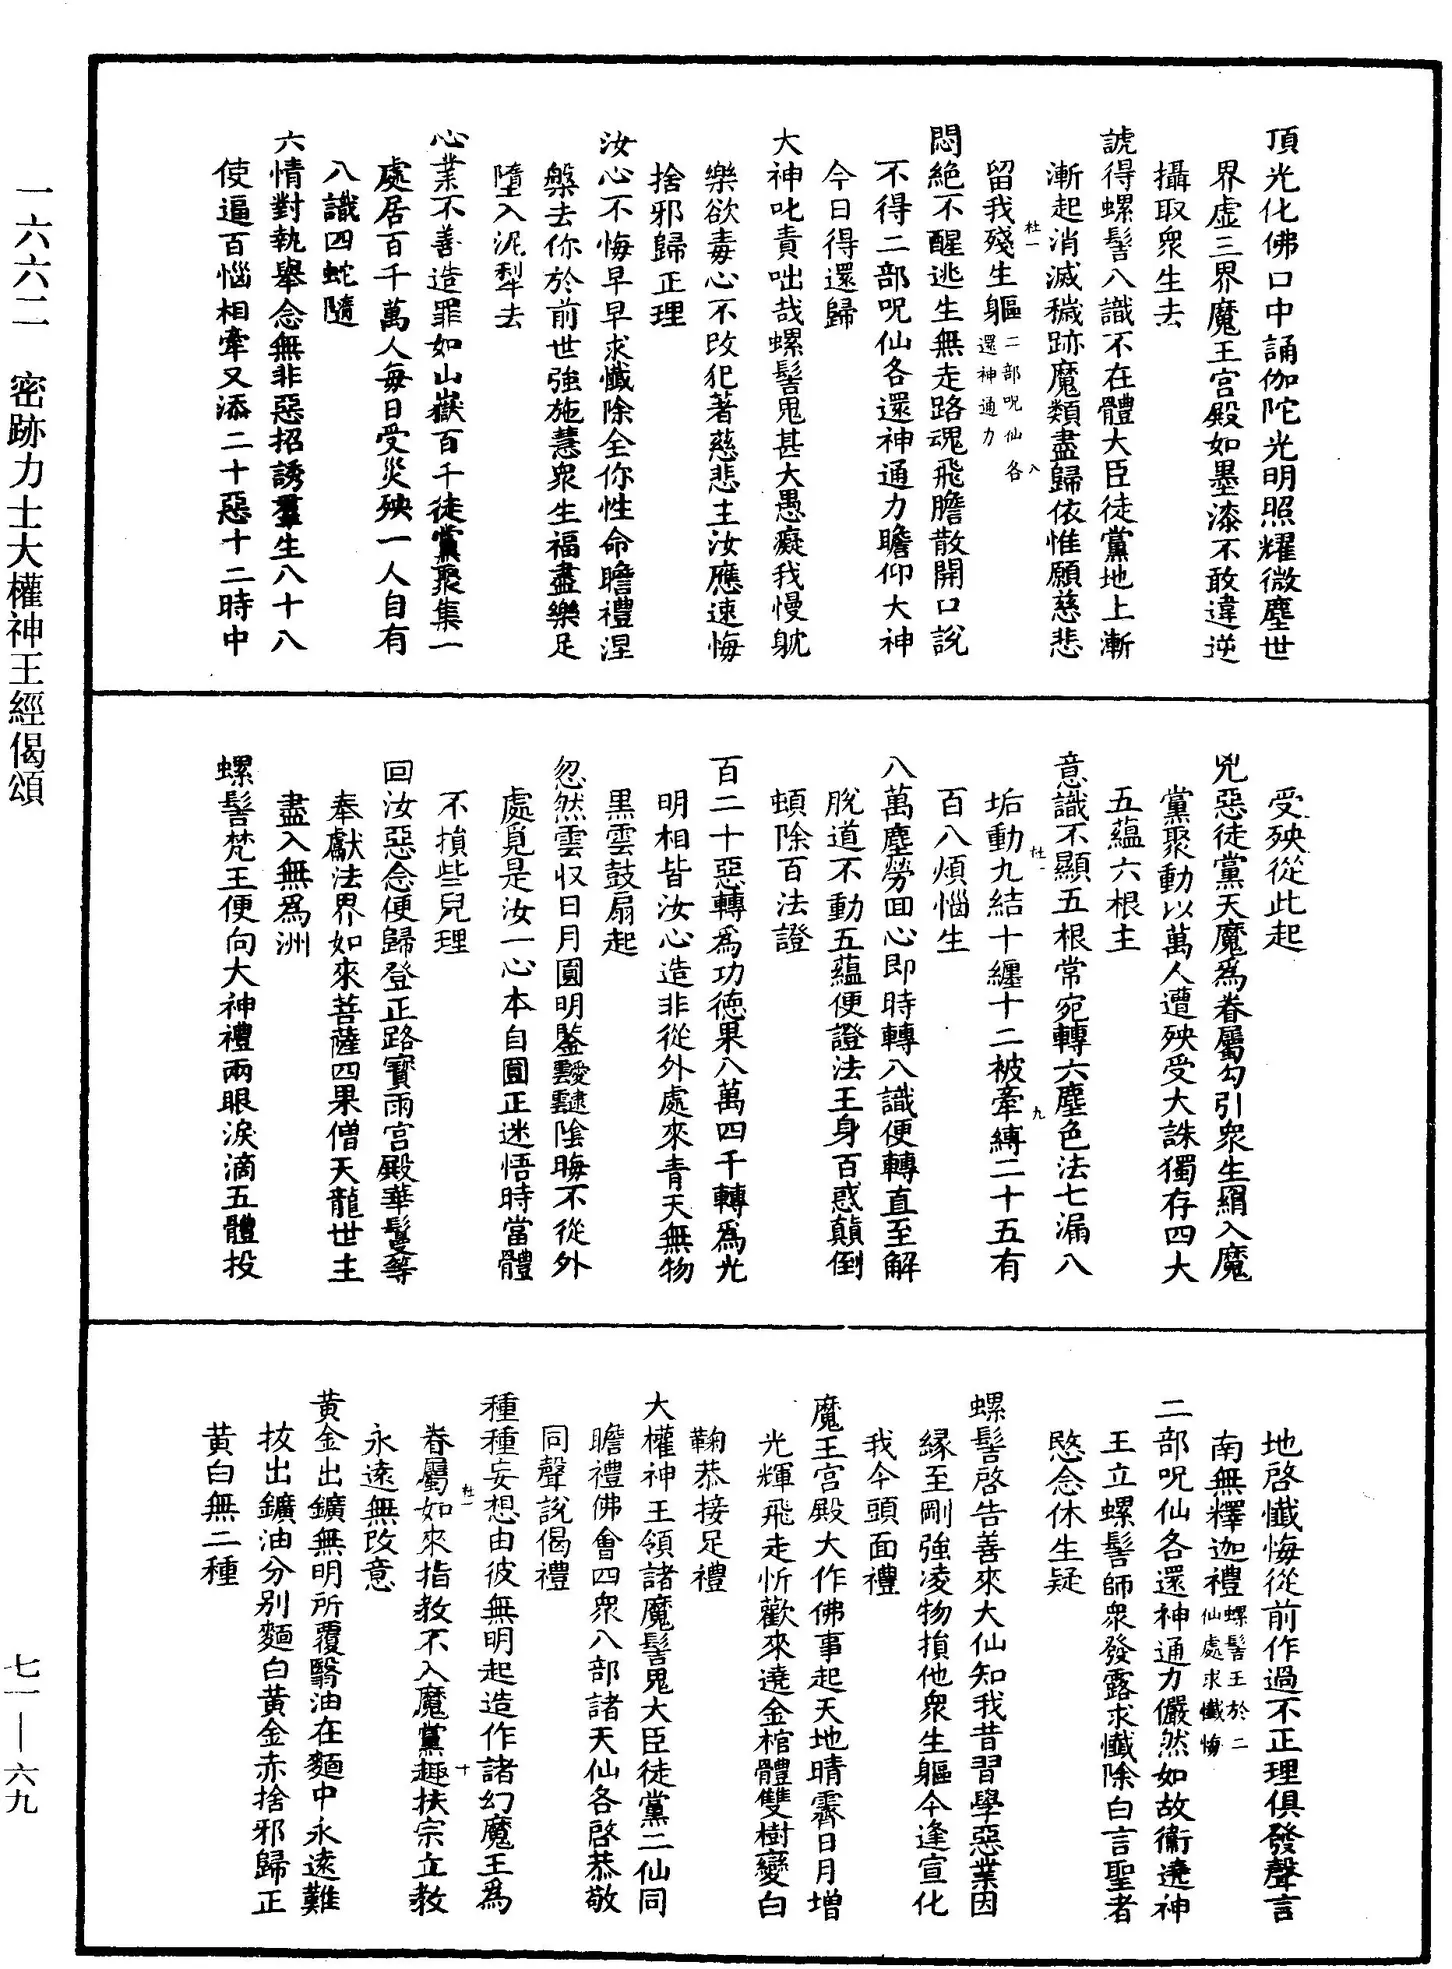 頂光化佛口中誦伽陀光明照耀微塵世
界虛三界魔王宮殿如墨漆不敢違逆
攝取衆生去
諕得螺髻八識不在體大臣徒黨地上漸
漸起消滅穢跡魔類盡歸依惟願慈悲
杜一
留我殘生軀二部呪仙各
還神通力
八
悶絕不醒逃生無走路魂飛膽散開口說
不得二部呪仙各還神通力瞻仰大神
今日得還歸
大神叱責咄哉螺髻鬼甚大愚癡我慢躭
樂欲毒心不改犯著慈悲主汝應速悔
捨邪歸正理
汝心不悔早早求懺除全你性命瞻禮涅
槃去你於前世強施慧衆生福盡樂足
墮入泥犁去
心業不善造罪如山嶽百千徒黨聚集一
處居百千萬人每日受災殃一人自有
八識四蛇隨
六情對執舉念無非惡招誘羣生八十八
使逼百惱相牽又添二十惡十二時中
受殃從此起
兇惡徒黨天魔爲眷屬勾引衆生羂入魔
黨聚動以萬人遭殃受大誅獨存四大
五蘊六根主
意識不顯五根常宛轉六塵色法七漏八
杜一
九
垢動九結十纏十二被牽縛二十五有
百八煩惱生
八萬塵勞回心即時轉八識便轉直至解
脫道不動五蘊便證法王身百惑顛倒
頓除百法證
百二十惡轉爲功德果八萬四千轉爲光
明相皆汝心造非從外處來青天無物
黑雲鼓扇起
忽然雲収日月圓明鑒靉靆陰晦不從外
處覓是汝一心本自圓正迷悟時當體
不損些兒理
回汝惡念便歸登正路寶雨宮殿華鬘等
奉獻法界如來菩薩四果僧天龍世主
盡入無爲洲
螺髻梵王便向大神禮兩眼淚滴五體投
地啓懺悔從前作過不正理俱發聲言
南無釋迦禮螺髻王於二
仙處求懺悔
二部呪仙各還神通力儼然如故衞遶神
王立螺髻師衆發露求懺除白言聖者
愍念休生疑
螺髻啓告善來大仙知我昔習學惡業因
緣至剛強凌物損他衆生軀今逢宣化
我今頭面禮
魔王宮殿大作佛事起天地晴霽日月增
光輝飛走忻歡來遶金棺體雙樹變白
鞠恭接足禮
大權神王領諸魔髻鬼大臣徒黨二仙同
瞻禮佛會四衆八部諸天仙各啓恭敬
同聲說偈禮
種種妄想由彼無明起造作諸幻魔王爲
杜一
十
眷屬如來指教不入魔黨趣扶宗立教
永遠無改意
黃金出鑛無明所覆翳油在麵中永遠難
拔出鑛油分別麵白黃金赤捨邪歸正
黃白無二種
一六六二　密跡力士大權神王經偈頌
七一—六九